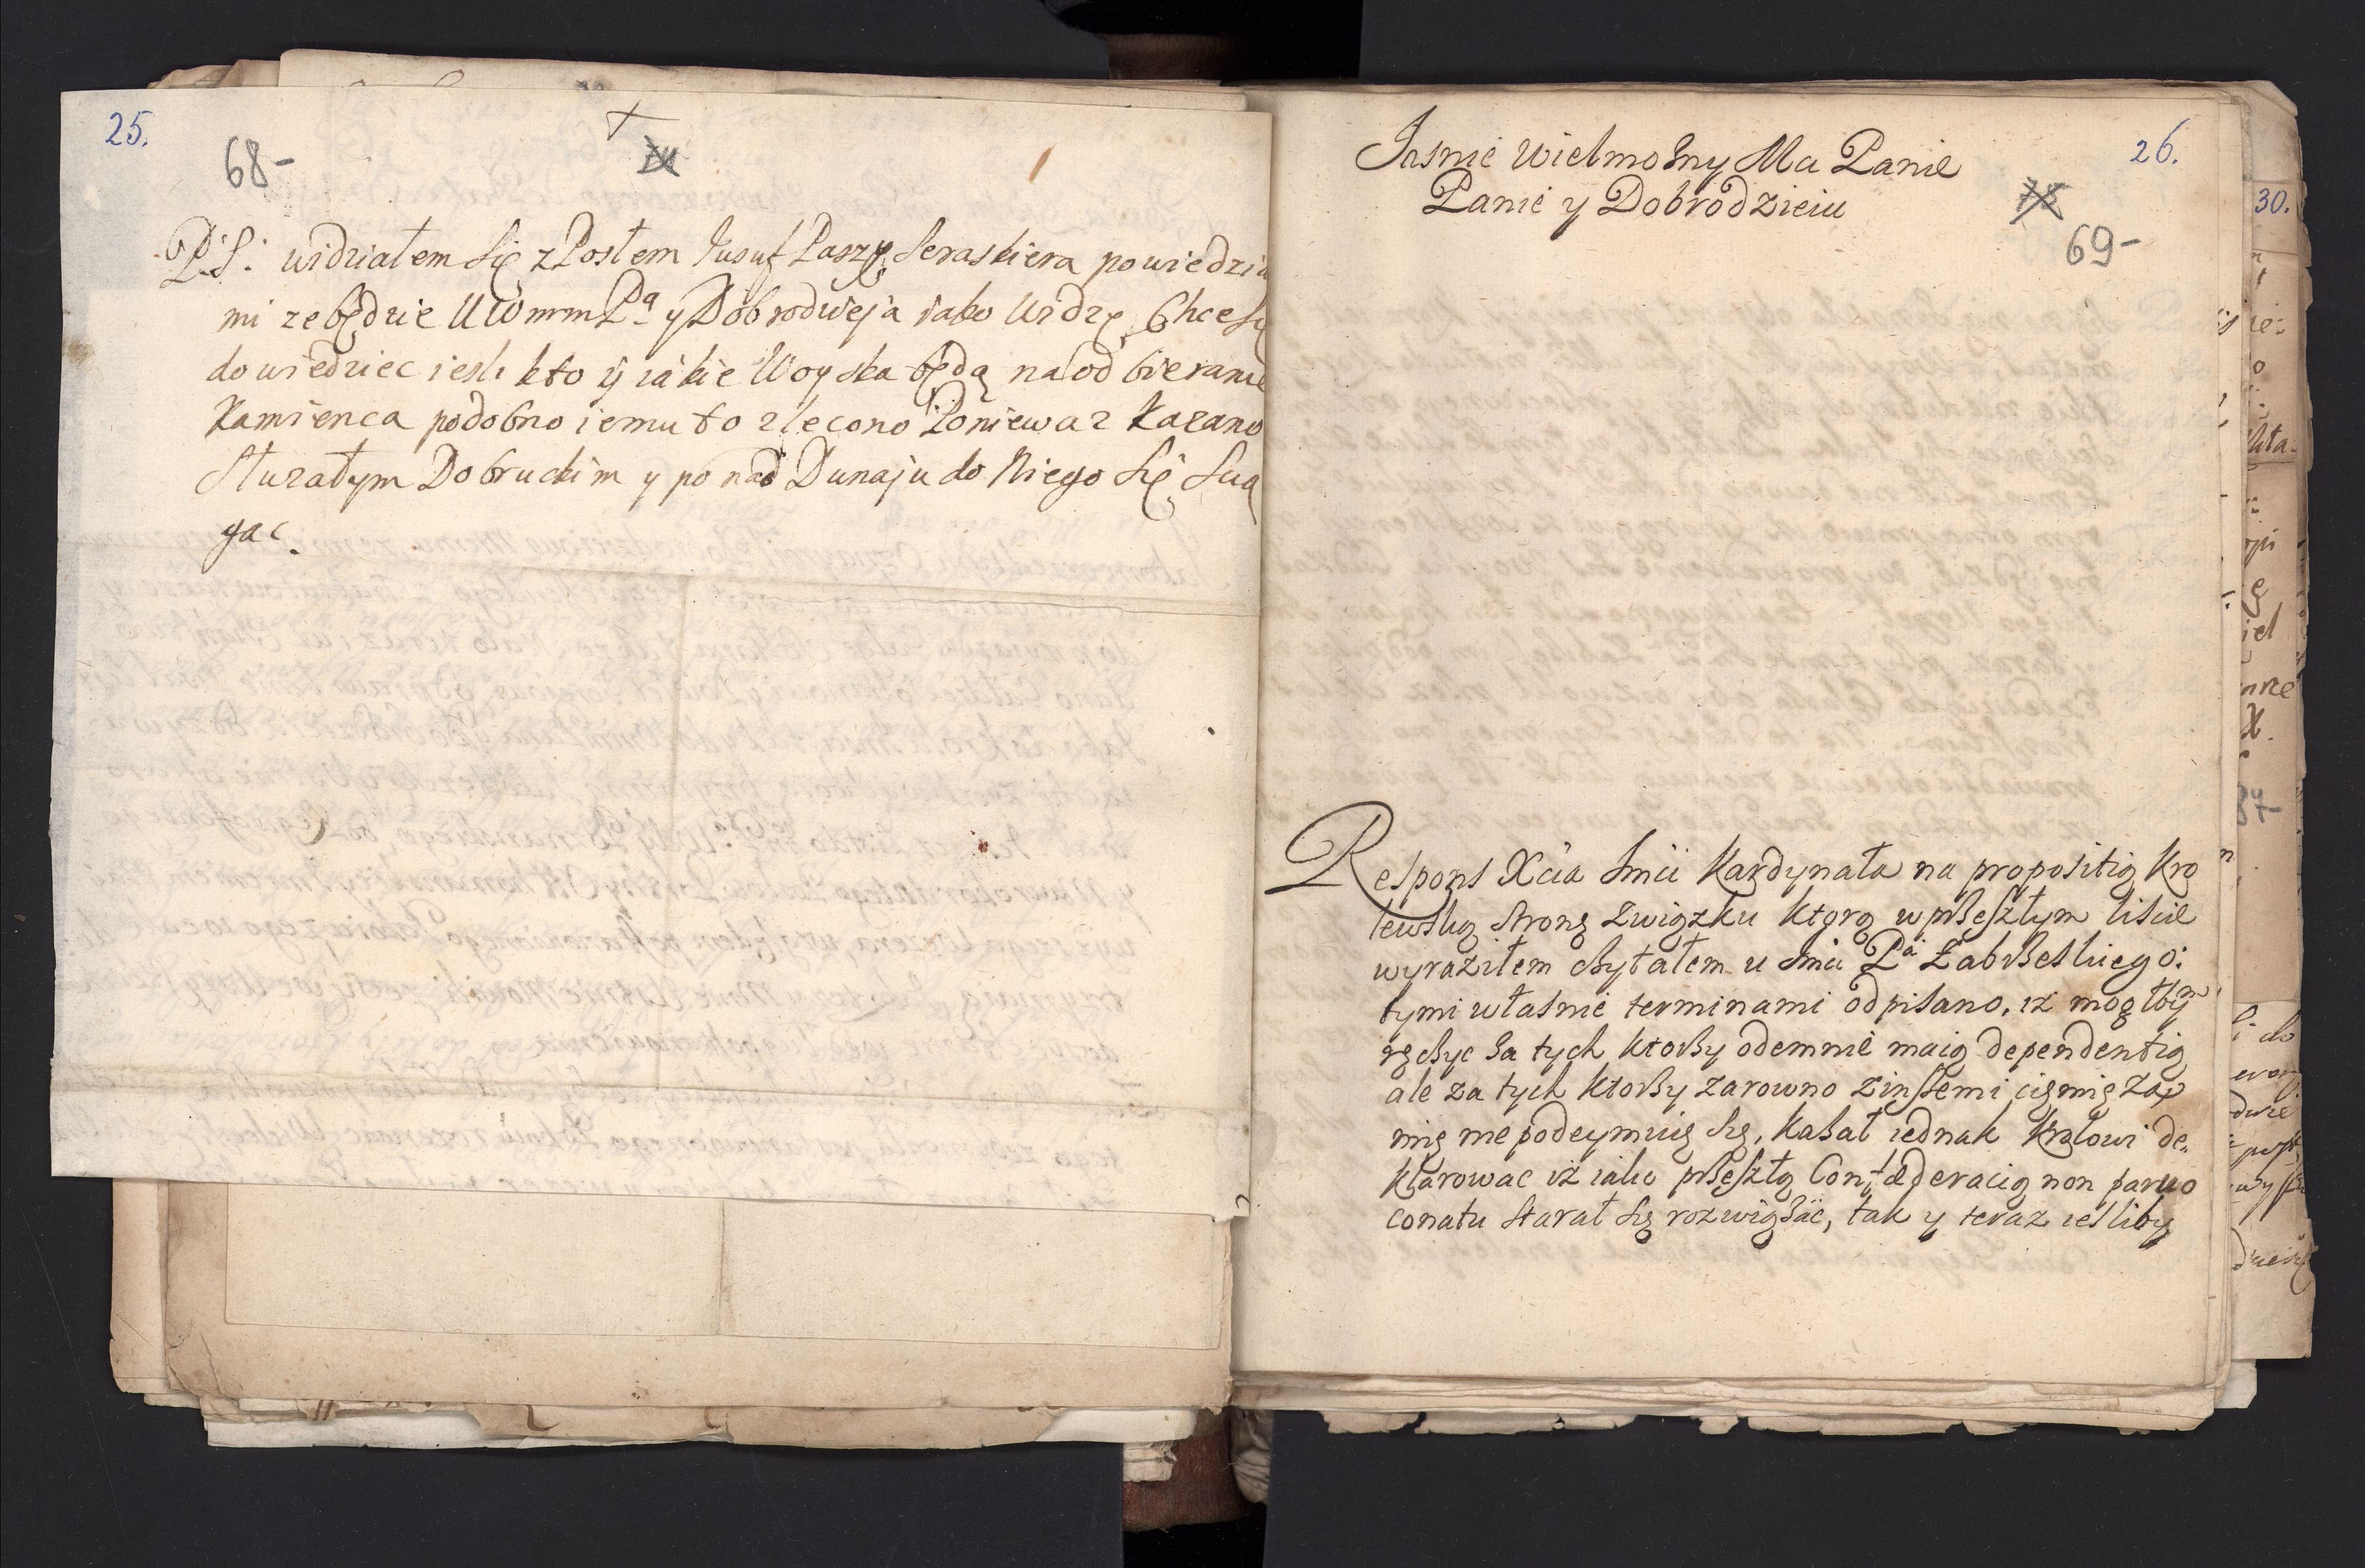 25.
68-
P.S. widziałem się z Posłem Jusuf Paszy Seraskiera powiedzia
mi ze będzie U Wmm Pa y Dobrodzieja iako widzę Chce się
dowiedziec iesli kto ÿ iakie Woyska będą na odbieranie
Kamienca podobno iemu to zlecono Poniewaz Kazano
Tym Dobruckim y po nad Dunaju do Niego się scią
gac.
26.
Jasnie Wielmozny Mu Panie
Panie y Dobrodzieiu
69-
Respons Xcia Jmci Kardynała na propositią kro
lewską stroną Zwiąsku ktorą w przeszłym liscie
wyraziłem czytałem u Jmci Pa Zabrzeskiego:
tymi własnie terminami odpisano, iż mogłbym
ręczyc za tych ktorzy odemnie maią dependentią
ale za tych ktorzy zarowno z inszemi
mię nie podeymuię się, kazał iednak Krolowi de
klarowac iż iako przeszłą Confæderacią non parvo
conatu starał się rozwiązac, tak y teraz iesliby
30.